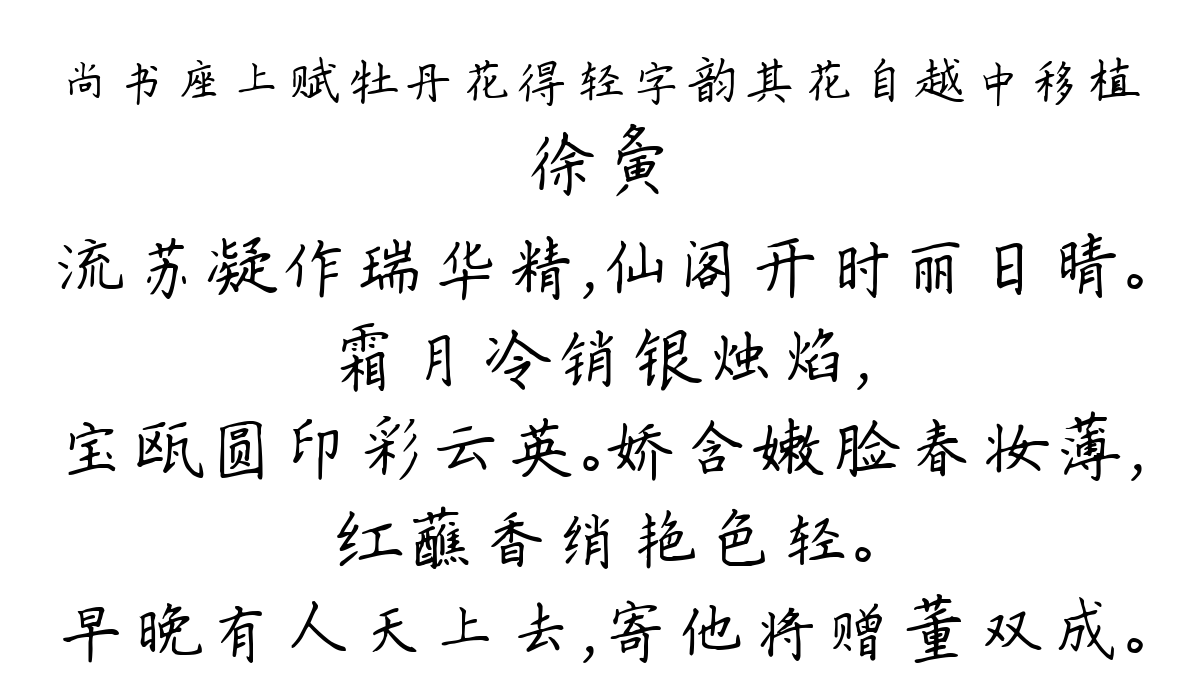 尚书座上赋牡丹花得轻字韵其花自越中移植
徐夤
流苏凝作瑞华精,仙阁开时丽日晴。
霜月冷销银烛焰,
宝瓯圆印彩云英。娇含嫩脸春妆薄,
红蘸香绡艳色轻。
早晚有人天上去,寄他将赠董双成。